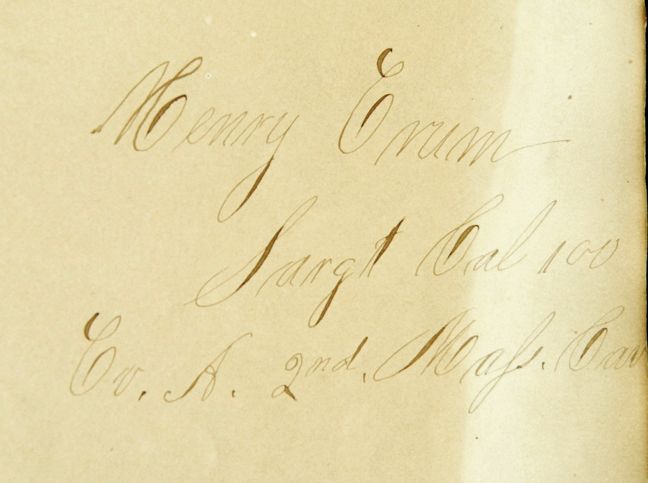 Henry Crum
Sargt Cal 100
Co. A. 2nd. Mass. Cav